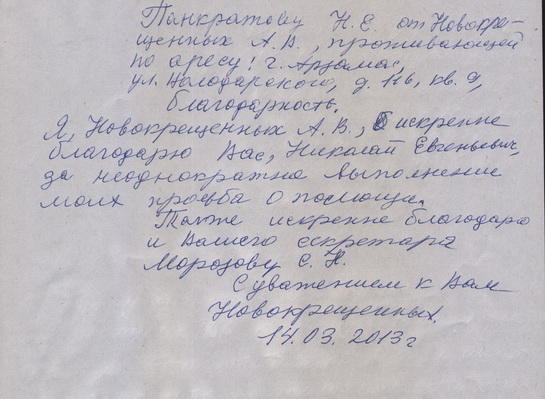 Панкратову Н. Е. от Новокре-
щенных А. В., проживающей
по аресу: г. Арзамас,
ул. Володарского, д. 116, кв. 9,
благодарность.
Я, Новокрещенных А. В., искренне
благодарю Вас, Николай Евгеньевич,
за неоднократно выполнение
моих просьба о помощи.
Также искренне благодарю
и Вашего секретаря
Морозову С. Н.
С уважением к Вам
Новокрещенных.
14.03.2013 г